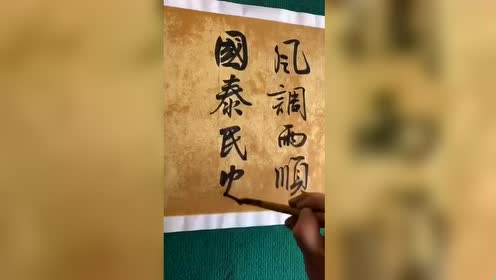 風調雨順
國泰民